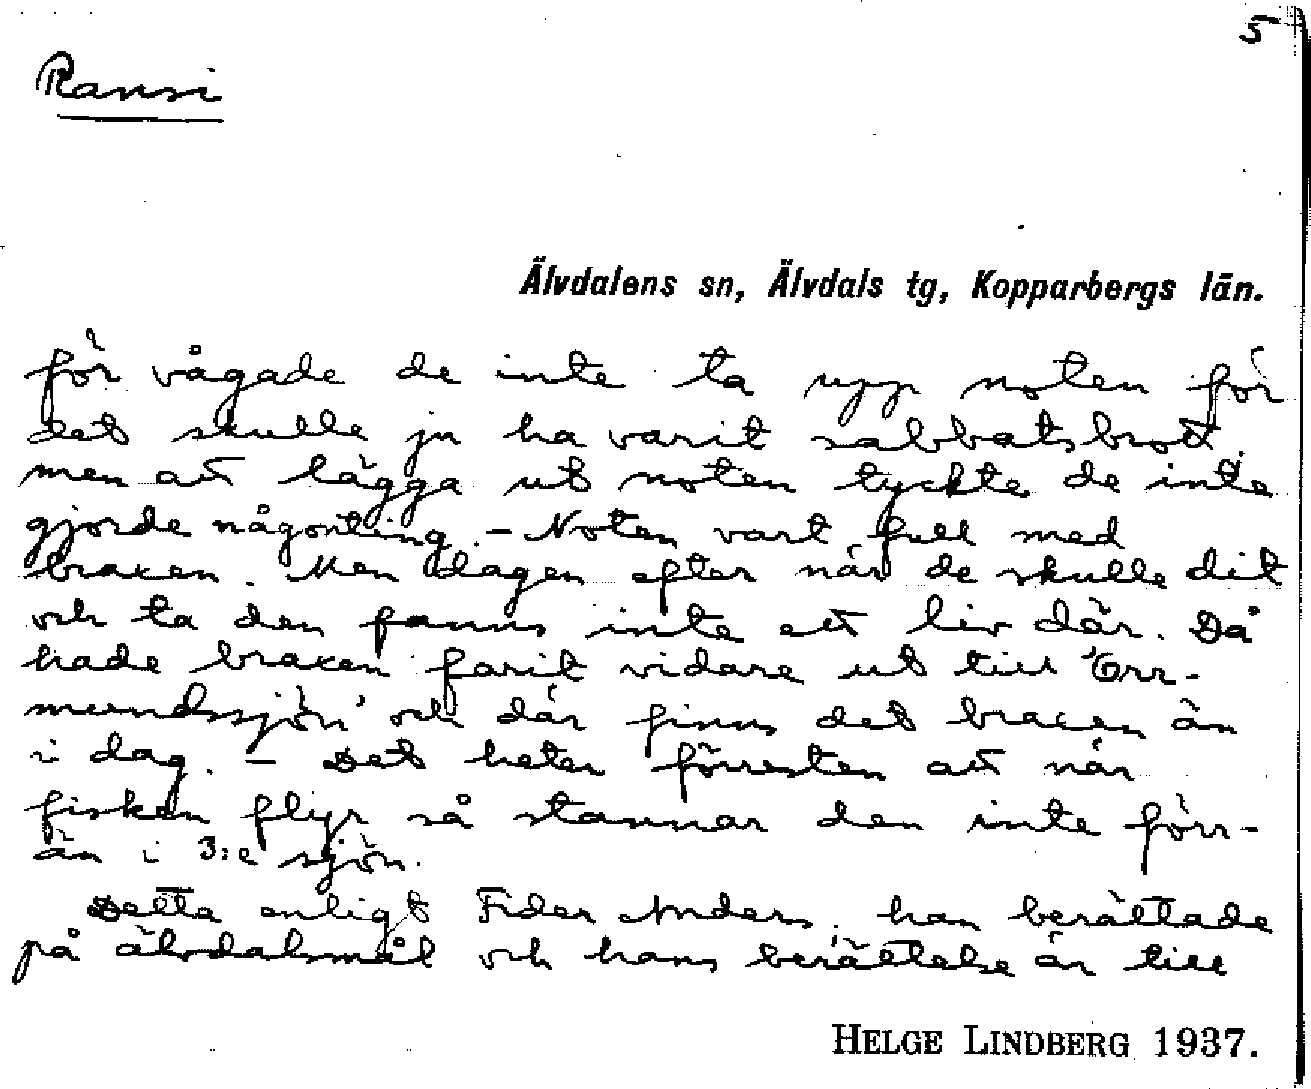 5
Ransi
Älvdalens sn, Älvdals tg, Kopparbergs län.
för vågade de inte ta upp noten för
det skulle ju ha varit sabbatsbrott,
men att lägga ut noten tyckte de inte
gjorde någonting. – Noten vart full med
braxen. Men dagen efter när de skulle dit
och ta den fanns inte ett liv där. Då
hade braxen farit vidare ut till Orr-
mundssjön och där finns det braxen än
i dag. – Det heter förresten att när
fisken flyr så stannar den inte förr-
än i 3:e sjön.
Detta enligt Fider Anders, han berättade
på älvdalsmål och hans berättelse är till
HELGE LINDBERG 1937.